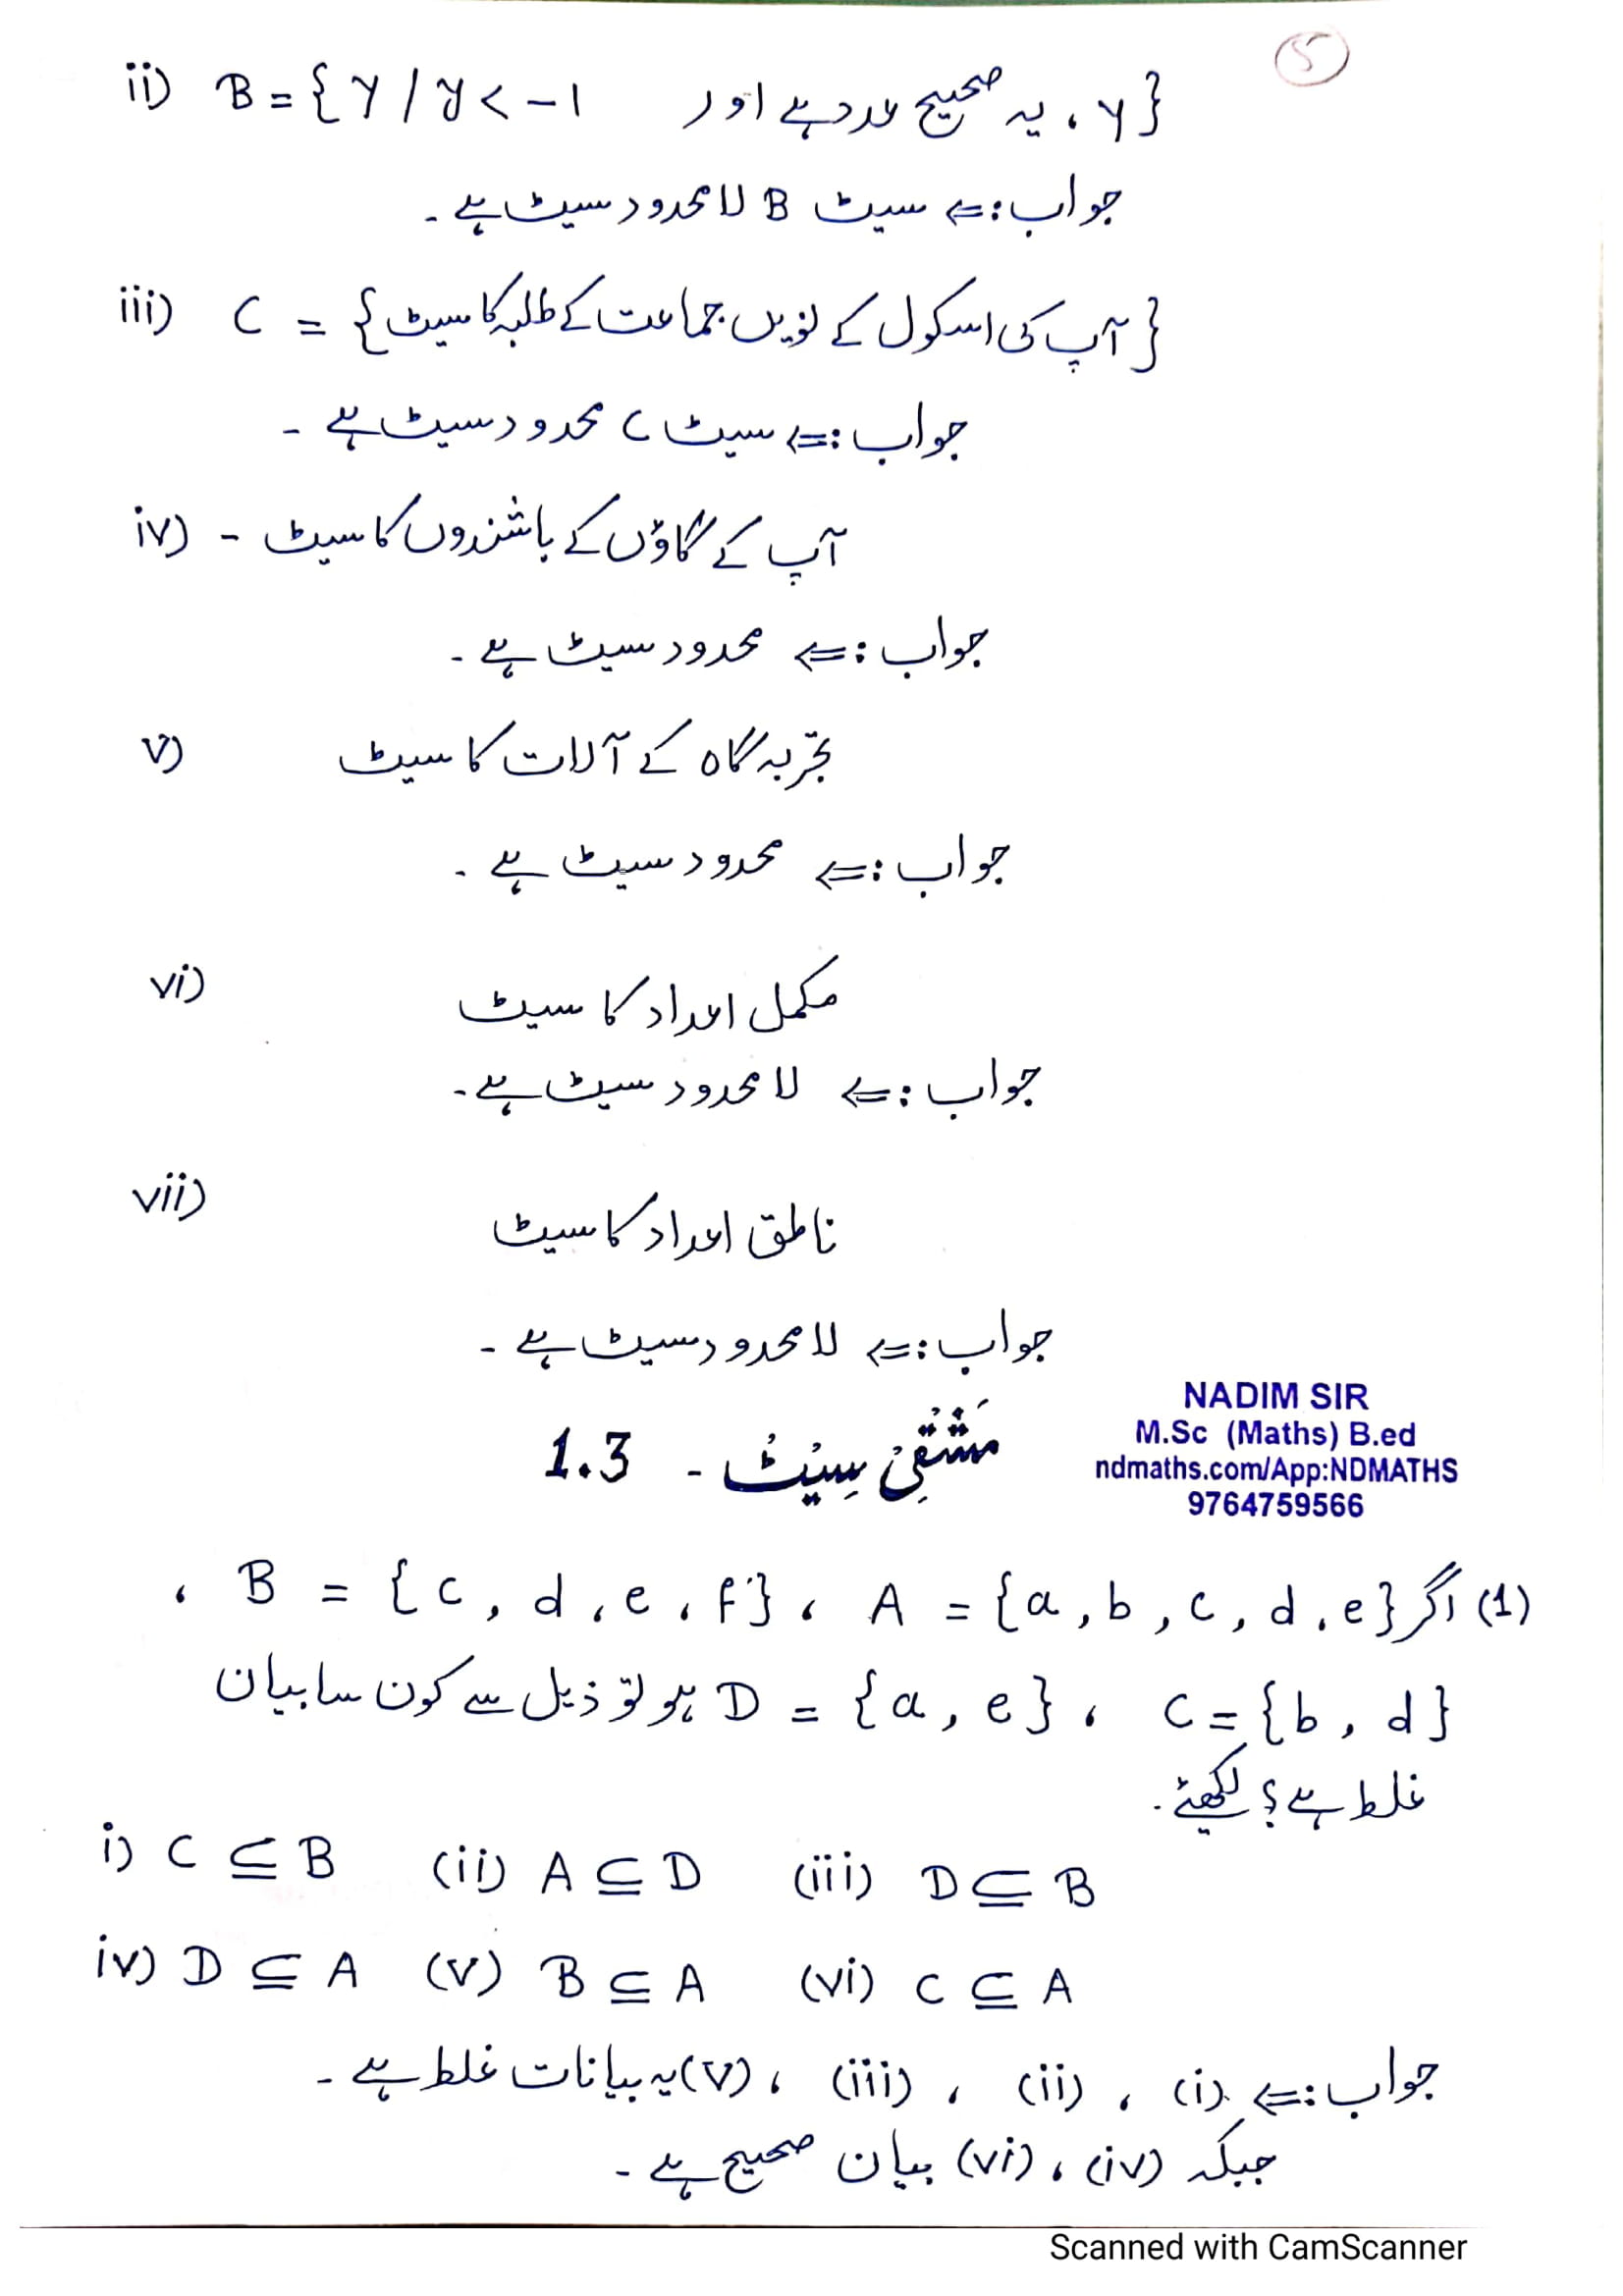 5
ii) B = {y / y < -1 یہ صحیح عدد ہے اور ، y}
جواب :⇐ سیٹ B لا محدود سیٹ ہے ۔
iii) C = {آپ کی اسکول کے نویں جماعت کے طلبہ کا سیٹ}
جواب :⇐ سیٹ C محدود سیٹ ہے ۔
iv) آپ کے گاؤں کے باشندوں کا سیٹ -
جواب :⇐ محدود سیٹ ہے ۔
v) تجربہ گاہ کے آلات کا سیٹ
جواب :⇐ محدود سیٹ ہے ۔
vi) مکمل اعداد کا سیٹ
جواب :⇐ لا محدود سیٹ ہے ۔
vii) ناطق اعداد کا سیٹ
جواب :⇐ لا محدود سیٹ ہے ۔
NADIM SIR
M.Sc (Maths) B.ed
ndmaths.com/App:NDMATHS
9764759566
مَشْقِیْ سِیْٹ - 1.3
(1) اگر A = {a, b, c, d, e} ، B = {c, d, e, f} ،
C = {b, d} ، D = {a, e} ہو تو ذیل سے کون سا بیان
غلط ہے؟ لکھئے ۔
i) C ⊆ B (ii) A ⊆ D (iii) D ⊆ B
iv) D ⊆ A (v) B ⊆ A (vi) C ⊆ A
جواب :⇐ (i) ، (ii) ، (iii) ، (v) یہ بیانات غلط ہے ۔
جبکہ (iv) ، (vi) بیان صحیح ہے ۔
Scanned with CamScanner